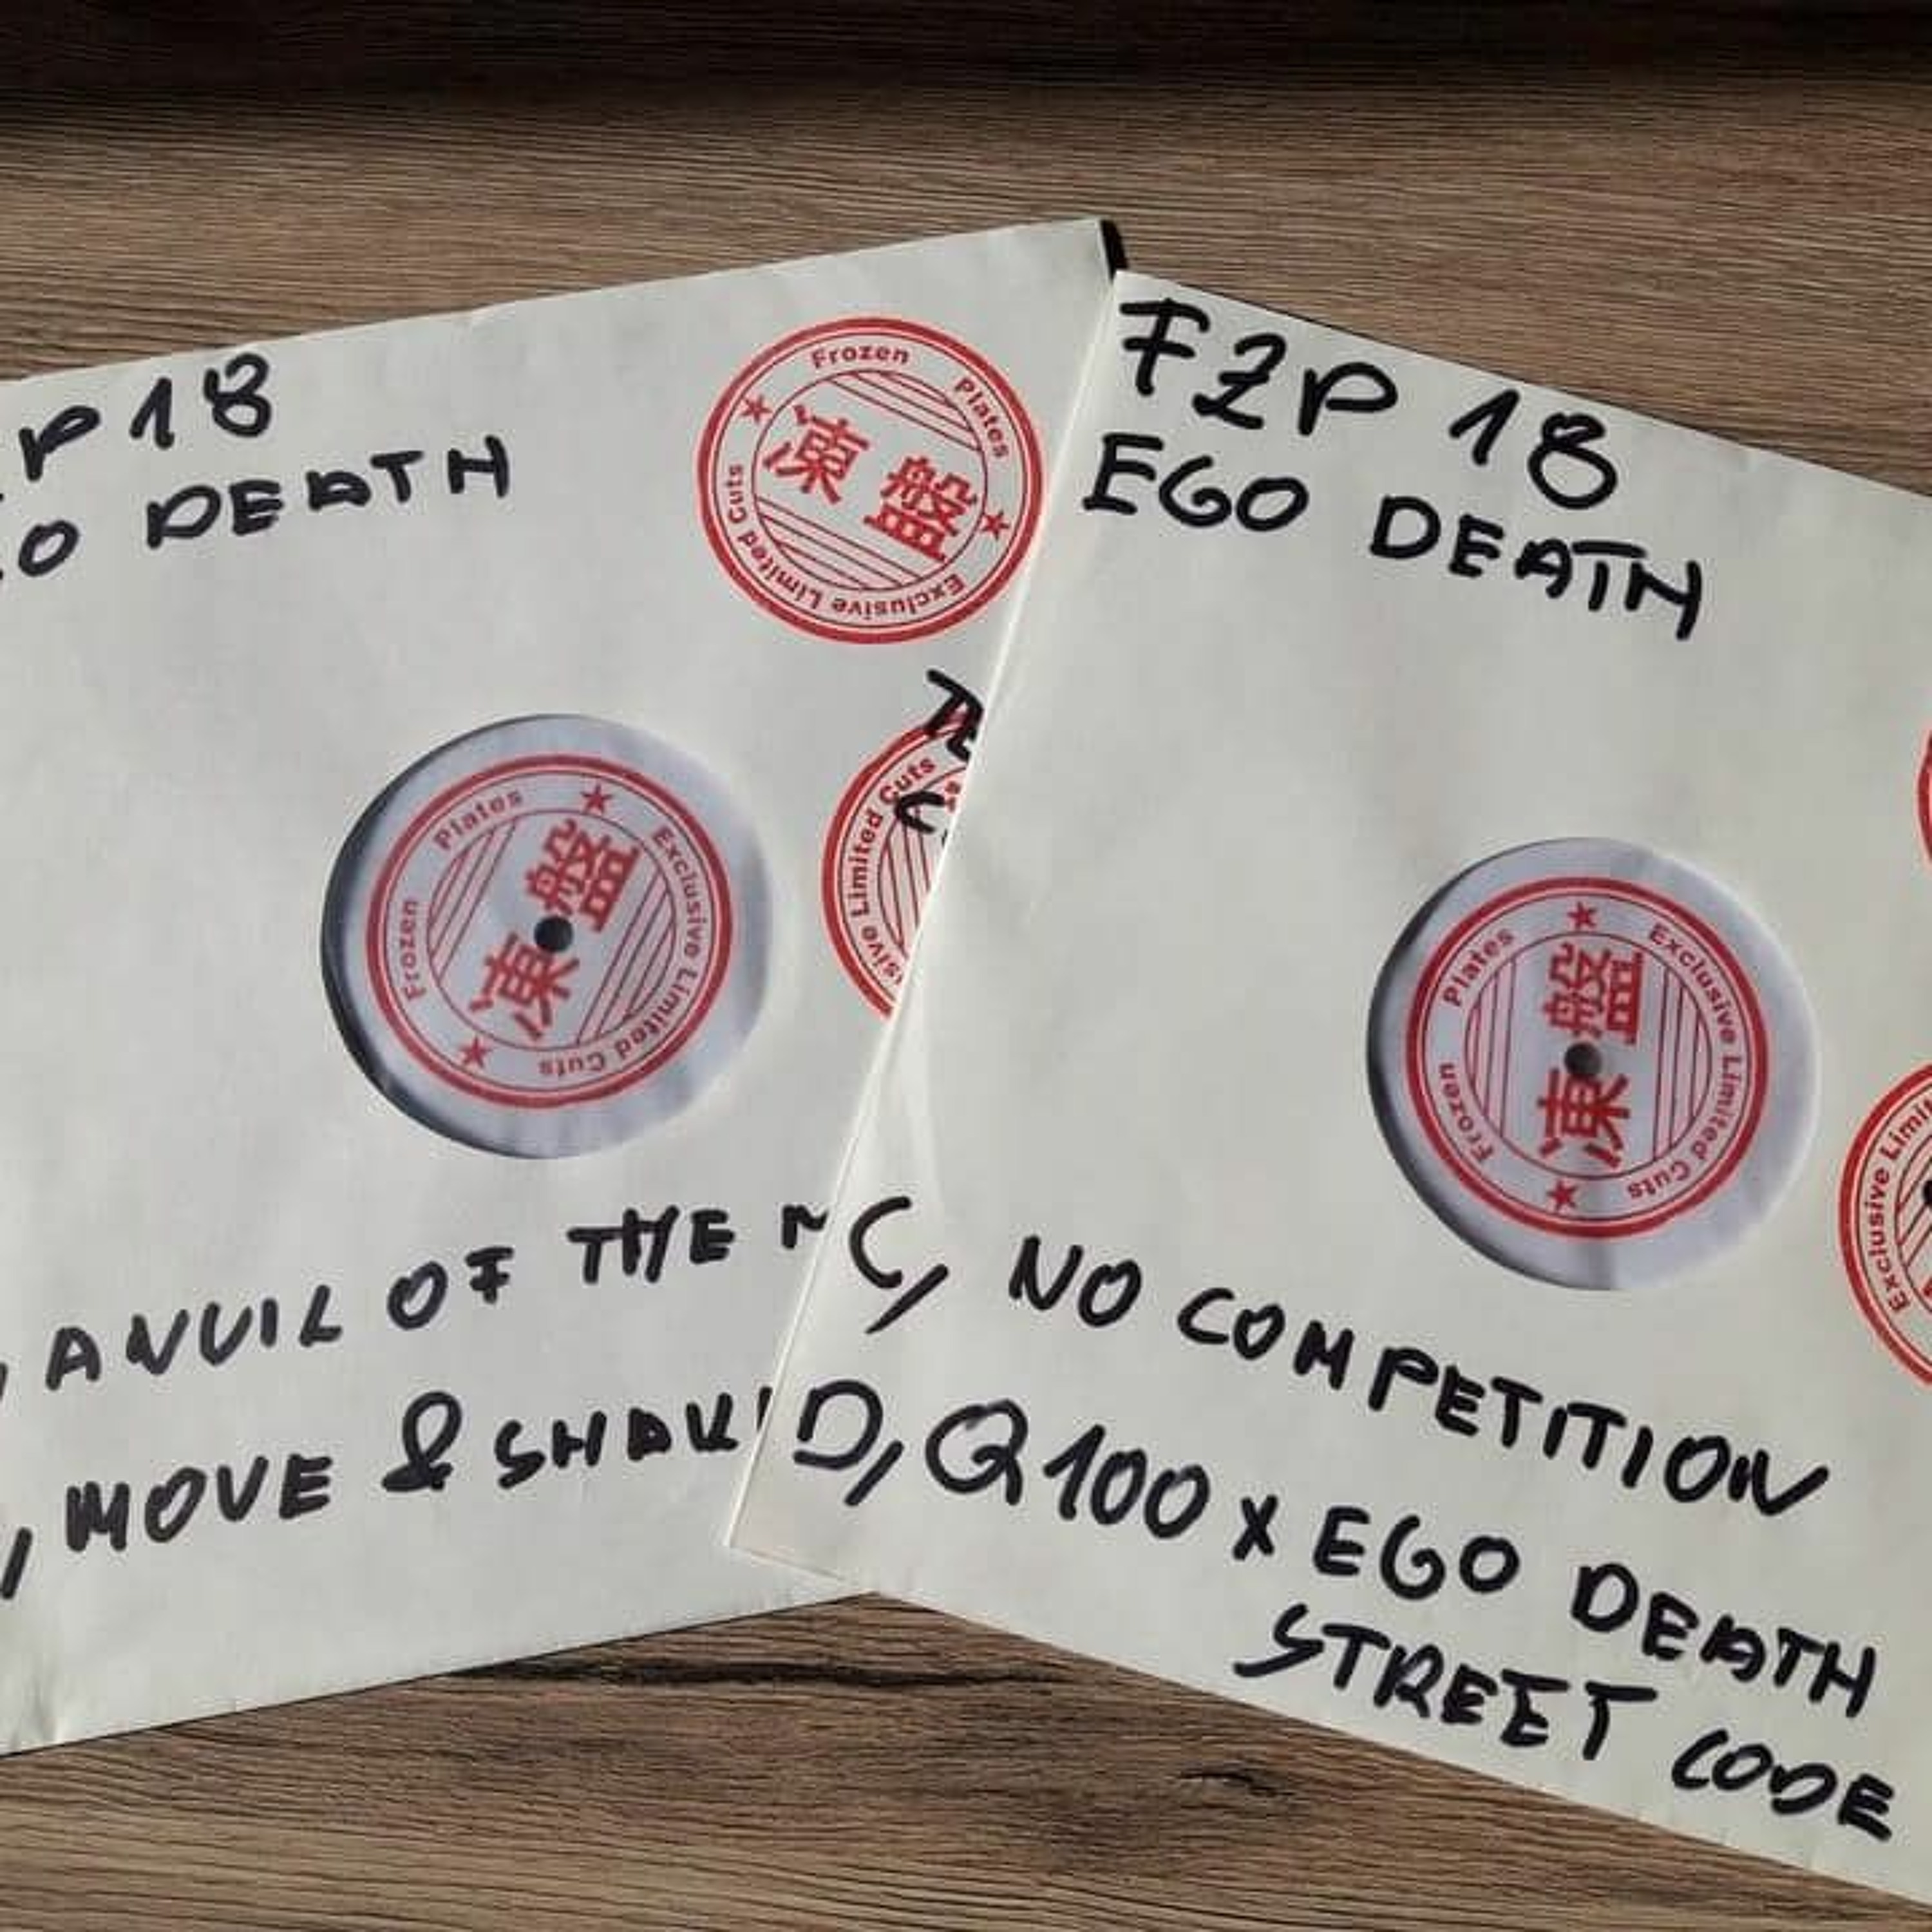 P 18
O DEATH
Frozen Plates
凍盤
Exclusive Limited Cuts
Frozen Plates
凍盤
Exclusive Limited Cuts
Limited Cuts
ANVIL OF THE
MOVE & SHAK
FZP 18
EGO DEATH
Frozen Plates
凍盤
Exclusive Limited Cuts
Exclusive
C, NO COMPETITION
D, Q100 x EGO DEATH
STREET CODE